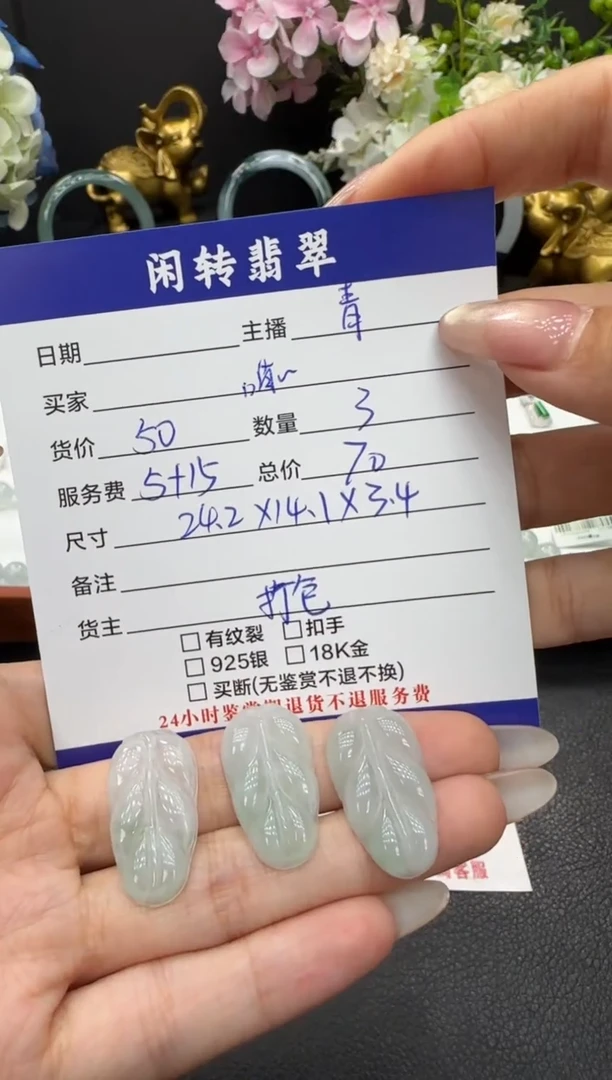 闲转翡翠
日期 主播 青
买家
货价 50 数量 3
服务费 5+15 总价 70
尺寸 24.2×14.1×3.4
备注
货主 打包
□有纹裂 □扣手
□925银 □18K金
□买断(无鉴赏不退不换)
24小时鉴赏期退货不退服务费
客服